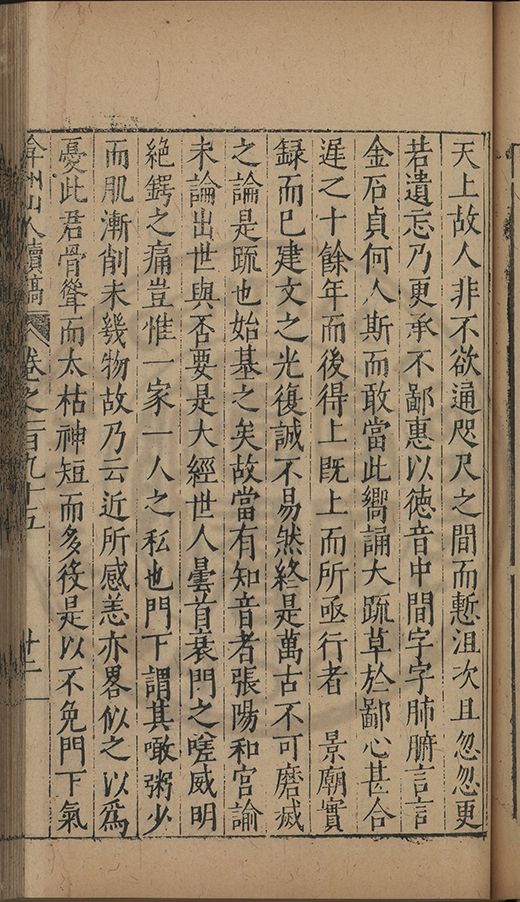 天上故人非不欲通咫尺之間而慙沮次且忽忽更
若遺忘乃更承不鄙惠以德音中間字字肺腑言言
金石貞何人斯而敢當此嚮誦大疏草於鄙心甚合
遲之十餘年而後得上旣上而所亟行者　景廟實
録而已建文之光復誠不易然終是萬古不可磨滅
之論是疏也始基之矣故當有知音者張陽和宮諭
未論出世與否要是大經世人曇首衰門之嗟威明
絶鍔之痛豈惟一家一人之私也門下謂其啖粥少
而肌漸削未幾物故乃云近所感恙亦畧似之以爲
憂此君骨聳而太枯神短而多役是以不免門下氣
弇州山人續稿　卷之一百九十五　廿二